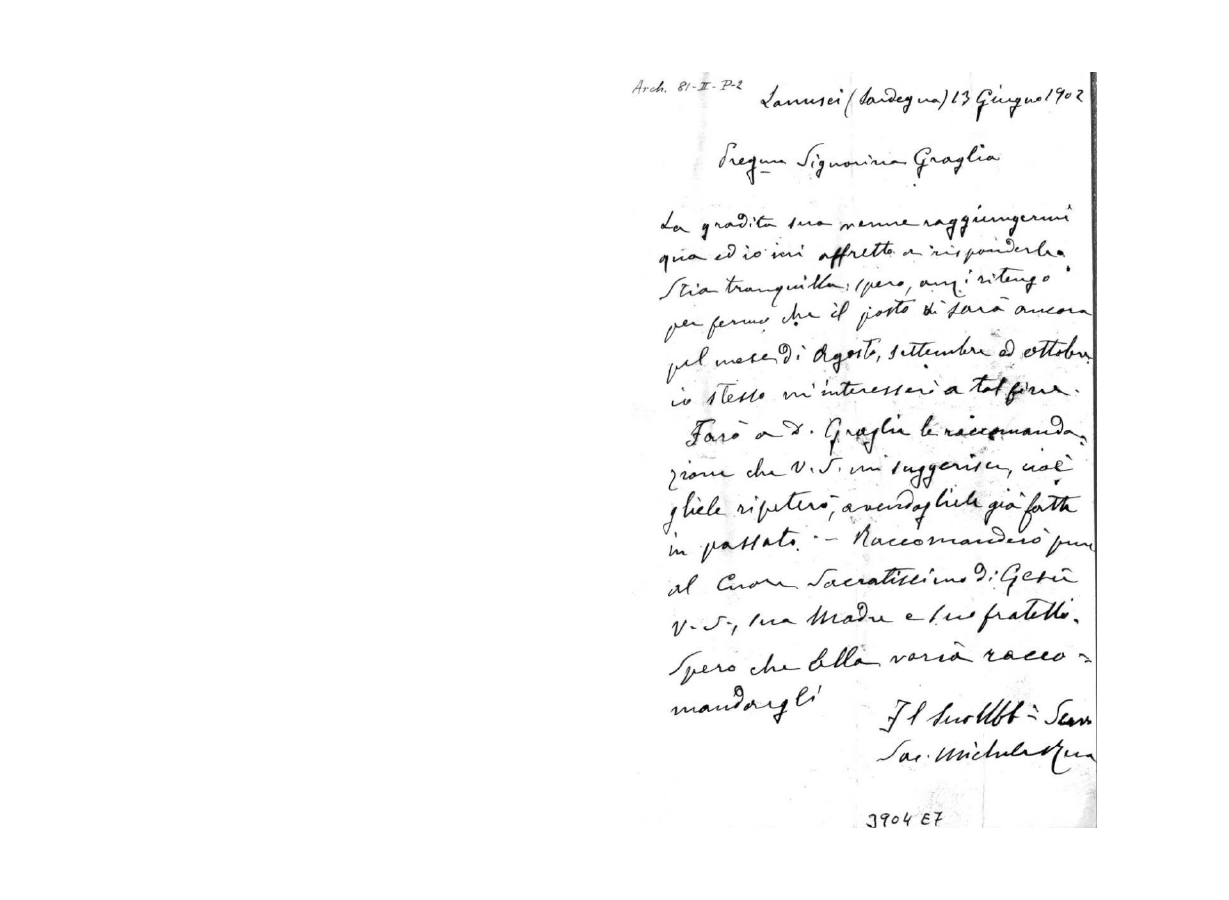 Arch. 81-II-P-2
Lanusei (Sardegna) 13 Giugno 1902
Preg.ma Signorina Graglia
La gradita sua venne raggiungermi
qua ed io mi affretto a risponderle.
Stia tranquilla: spero, anzi ritengo
per fermo che il posto vi sarà ancora
pel mese di Agosto, settembre ed ottobre
io stesso m'interesserò a tal fine.
Farò a D. Graglia le raccomanda-
zione che V. S. mi suggerisce, cioè
gliele ripeterò, avendogliele già fatte
in passato. - Raccomanderò pure
al Cuore Sacratissimo di Gesù
V. S., sua Madre e suo fratello.
Spero che Ella vorrà racco=
mandargli
Il suo Obb= Serv
Sac. Michele Rua
3904 E7